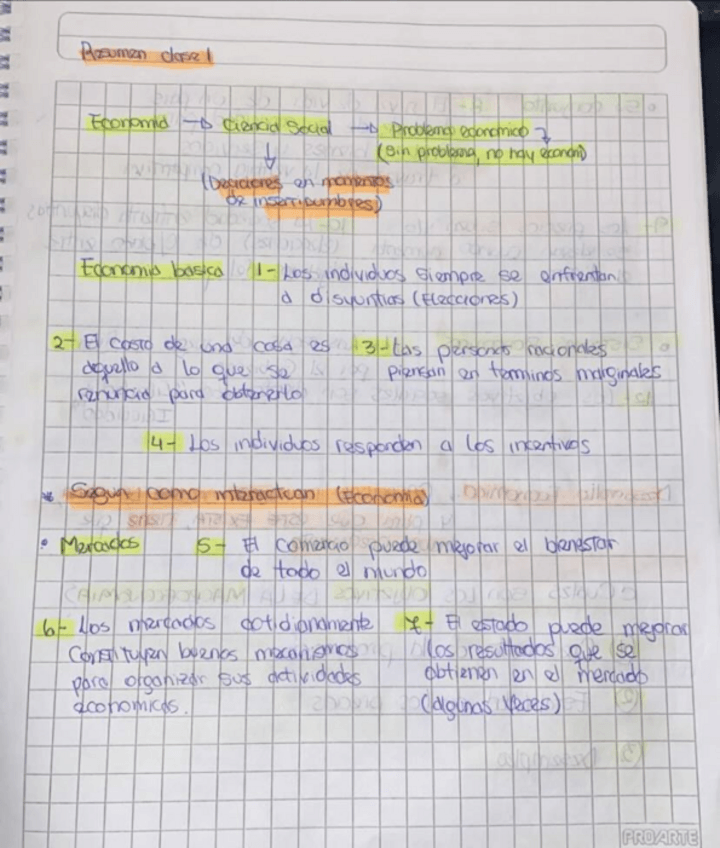 Resumen clase 1
Economia → Ciencia Social → Problema economico
(Sin problema, no hay economia)
(Decisiones en momentos
de insertidumbres)
Economia basica
1- Los individuos siempre se enfrentan
a disyuntias (Elecciones)
2- El costo de una cosa es
aquello a lo que se
renuncia para obtenerlo
3- Las personas racionales
piensan en terminos marginales
4- Los individuos responden a los incentivos
* Segun como interactuan (Economia)
• Mercados
5- El Comercio puede mejorar el bienestar
de todo el mundo
6- Los mercados cotidianamente
Constituyen buenos mecanismos
para organizar sus actividades
economicas.
7- El estado puede mejorar
los resultados que se
obtienen en el mercado
(algunas veces)
PROARTE